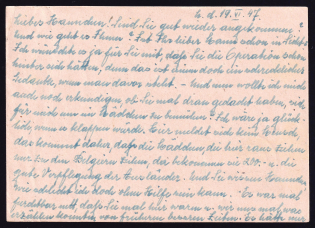 d. 19.VI.47.
Liebes Hannchen! Sind Sie gut wieder angekommen?
Und wie geht es Ihnen? Ist Ihr lieber Mann schon in
Ich wünschte es ja für Sie mit, daß Sie die Operation schon
hinter sich hätten, denn das ist nun doch ein schrecklicher
Gedanke, wenn man davor steht. – Und nun wollte ich mich
auch noch erkundigen, ob Sie mal dran gedacht haben, sich
für mich um ein Mädchen zu bemühen? Ich wär ja glück-
lich, wenn es klappen würde. Hier meldet sich kein Mensch,
das kommt daher, daß die Mädchen, die hier rum ziehen
nur zu den Belgiern ziehen, da bekommen sie 200,- u. die
gute Verpflegung der Ausländer. Und Sie wissen Hannchen
wie schlecht ich doch ohne Hilfe sein kann. Es war mal
furchtbar nett, daß Sie mal hier waren u. wir uns mal was
erzählen konnten von früheren besseren Zeiten. Es hatte mir